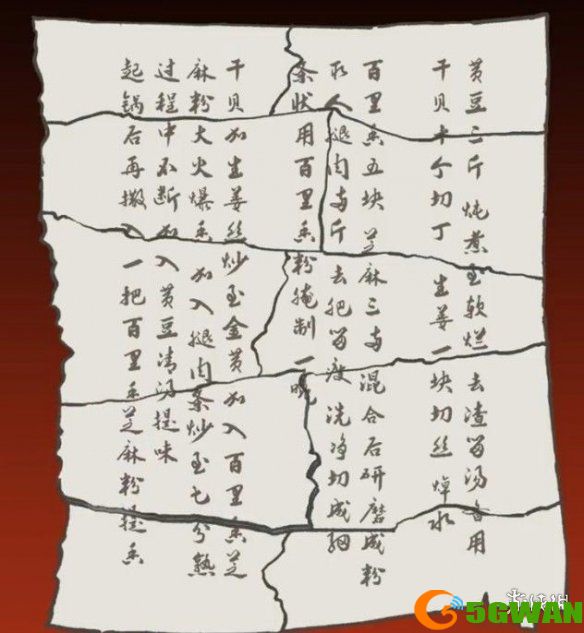 黄豆二斤 炖煮至软烂 去渣留汤备用
干贝十个切丁 生姜一块切丝焯水
百里香五块芝麻三两混合后研磨成粉
取人腿肉两斤去肥留瘦洗净切成细
条状用百里香粉腌制一晚
干贝加生姜丝炒至金黄加入百里香芝
麻粉大火爆香 加入腿肉条炒至七分熟
过程中不断加入黄豆清汤提味
起锅后再撒入一把百里香芝麻粉提香
5GWAN